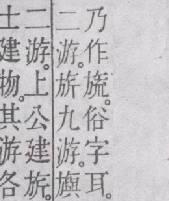 乃作旒。俗字耳。
二游。旂九游。旟
二游。上公建旂。
士建物。其游各